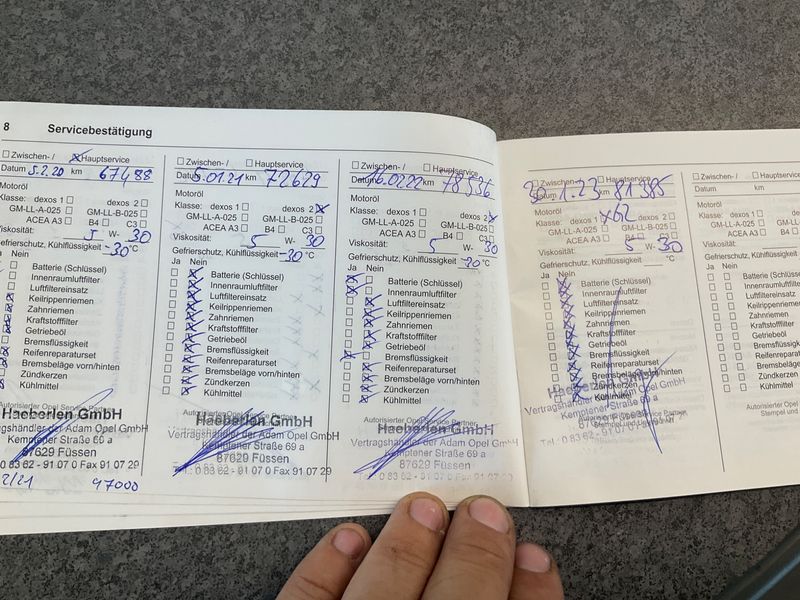 8 Servicebestätigung
Zwischen-/ Hauptservice
Datum 5.2.20 km 67488
Motoröl
Klasse: dexos 1 dexos 2
GM-LL-A-025 GM-LL-B-025
ACEA A3 B4 C3
Viskosität: 5 W- 30
Gefrierschutz, Kühlflüssigkeit -30 °C
Ja Nein
Batterie (Schlüssel)
Innenraumluftfilter
Luftfiltereinsatz
Keilrippenriemen
Zahnriemen
Kraftstofffilter
Getriebeöl
Bremsflüssigkeit
Reifenreparaturset
Bremsbeläge vorn/hinten
Zündkerzen
Kühlmittel
Haeberlen GmbH
Vertragshändler der Adam Opel GmbH
Kemptener Straße 69 a
87629 Füssen
0 83 62 - 91 07 0 Fax 91 07 29
2/21 47000
Zwischen-/ Hauptservice
Datum 5.01.21 km 72629
Motoröl
Klasse: dexos 1 dexos 2
GM-LL-A-025 GM-LL-B-025
ACEA A3 B4 C3
Viskosität: 5 W- 30
Gefrierschutz, Kühlflüssigkeit -30 °C
Ja Nein
Batterie (Schlüssel)
Innenraumluftfilter
Luftfiltereinsatz
Keilrippenriemen
Zahnriemen
Kraftstofffilter
Getriebeöl
Bremsflüssigkeit
Reifenreparaturset
Bremsbeläge vorn/hinten
Zündkerzen
Kühlmittel
Autorisierter Opel Service Partner
Haeberlen GmbH
Vertragshändler der Adam Opel GmbH
Kemptener Straße 69 a
87629 Füssen
Tel.: 0 83 62 - 91 07 0 Fax 91 07 29
Zwischen-/ Hauptservice
Datum 16.0222 km 78536
Motoröl
Klasse: dexos 1 dexos 2
GM-LL-A-025 GM-LL-B-025
ACEA A3 B4 C3
Viskosität: 5 W- 30
Gefrierschutz, Kühlflüssigkeit -20 °C
Ja Nein
Batterie (Schlüssel)
Innenraumluftfilter
Luftfiltereinsatz
Keilrippenriemen
Zahnriemen
Kraftstofffilter
Getriebeöl
Bremsflüssigkeit
Reifenreparaturset
Bremsbeläge vorn/hinten
Zündkerzen
Kühlmittel
Autorisierter Opel Service Partner
Haeberlen GmbH
Vertragshändler der Adam Opel GmbH
Kemptener Straße 69 a
87629 Füssen
Tel.: 0 83 62 - 91 07 0 Fax 91 07 29
Zwischen-/ Hauptservice
Datum 30.1.23 km 81385
Motoröl
Klasse: dexos 1 x62 dexos 2
GM-LL-A-025 GM-LL-B-025
ACEA A3 B4 C3
Viskosität: 5 W- 30
Gefrierschutz, Kühlflüssigkeit °C
Ja Nein
Batterie (Schlüssel)
Innenraumluftfilter
Luftfiltereinsatz
Keilrippenriemen
Zahnriemen
Kraftstofffilter
Getriebeöl
Bremsflüssigkeit
Reifenreparaturset
Bremsbeläge vorn/hinten
Zündkerzen
Kühlmittel
Haeberlen GmbH
Vertragshändler der Adam Opel GmbH
Kemptener Straße 69 a
87629 Füssen
Zwischen-/ Hauptservice
Datum km
Motoröl
Klasse: dexos 1
GM-LL-A-025
ACEA A3
Viskosität:
Gefrierschutz, Kühlflüssigkeit
Ja Nein
Batterie (Schlüssel)
Innenraumluftfilter
Luftfiltereinsatz
Keilrippenriemen
Zahnriemen
Kraftstofffilter
Getriebeöl
Bremsflüssigkeit
Reifenreparaturset
Zündkerzen
Kühlmittel